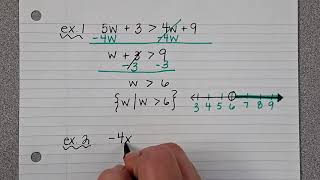 ex. 1 5w + 3 > 4w + 9
-4w -4w
w + 3 > 9
-3 -3
w > 6
{w | w > 6}
3 4 5 6 7 8 9
ex. 2 -4x